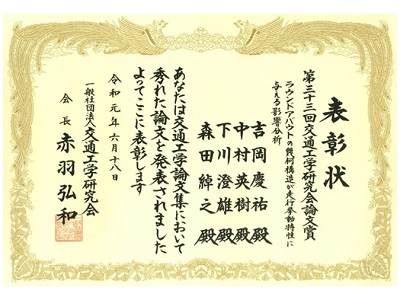 表彰状
第三十三回交通工学研究会論文賞
ラウンドアバウトの幾何構造が走行挙動特性に
与える影響分析
吉岡慶祐殿
中村英樹殿
下川澄雄殿
森田綽之殿
あなたは交通工学論文集において
秀れた論文を発表されました
よってここに表彰します
令和元年六月十八日
一般社団法人交通工学研究会
会長 赤羽弘和